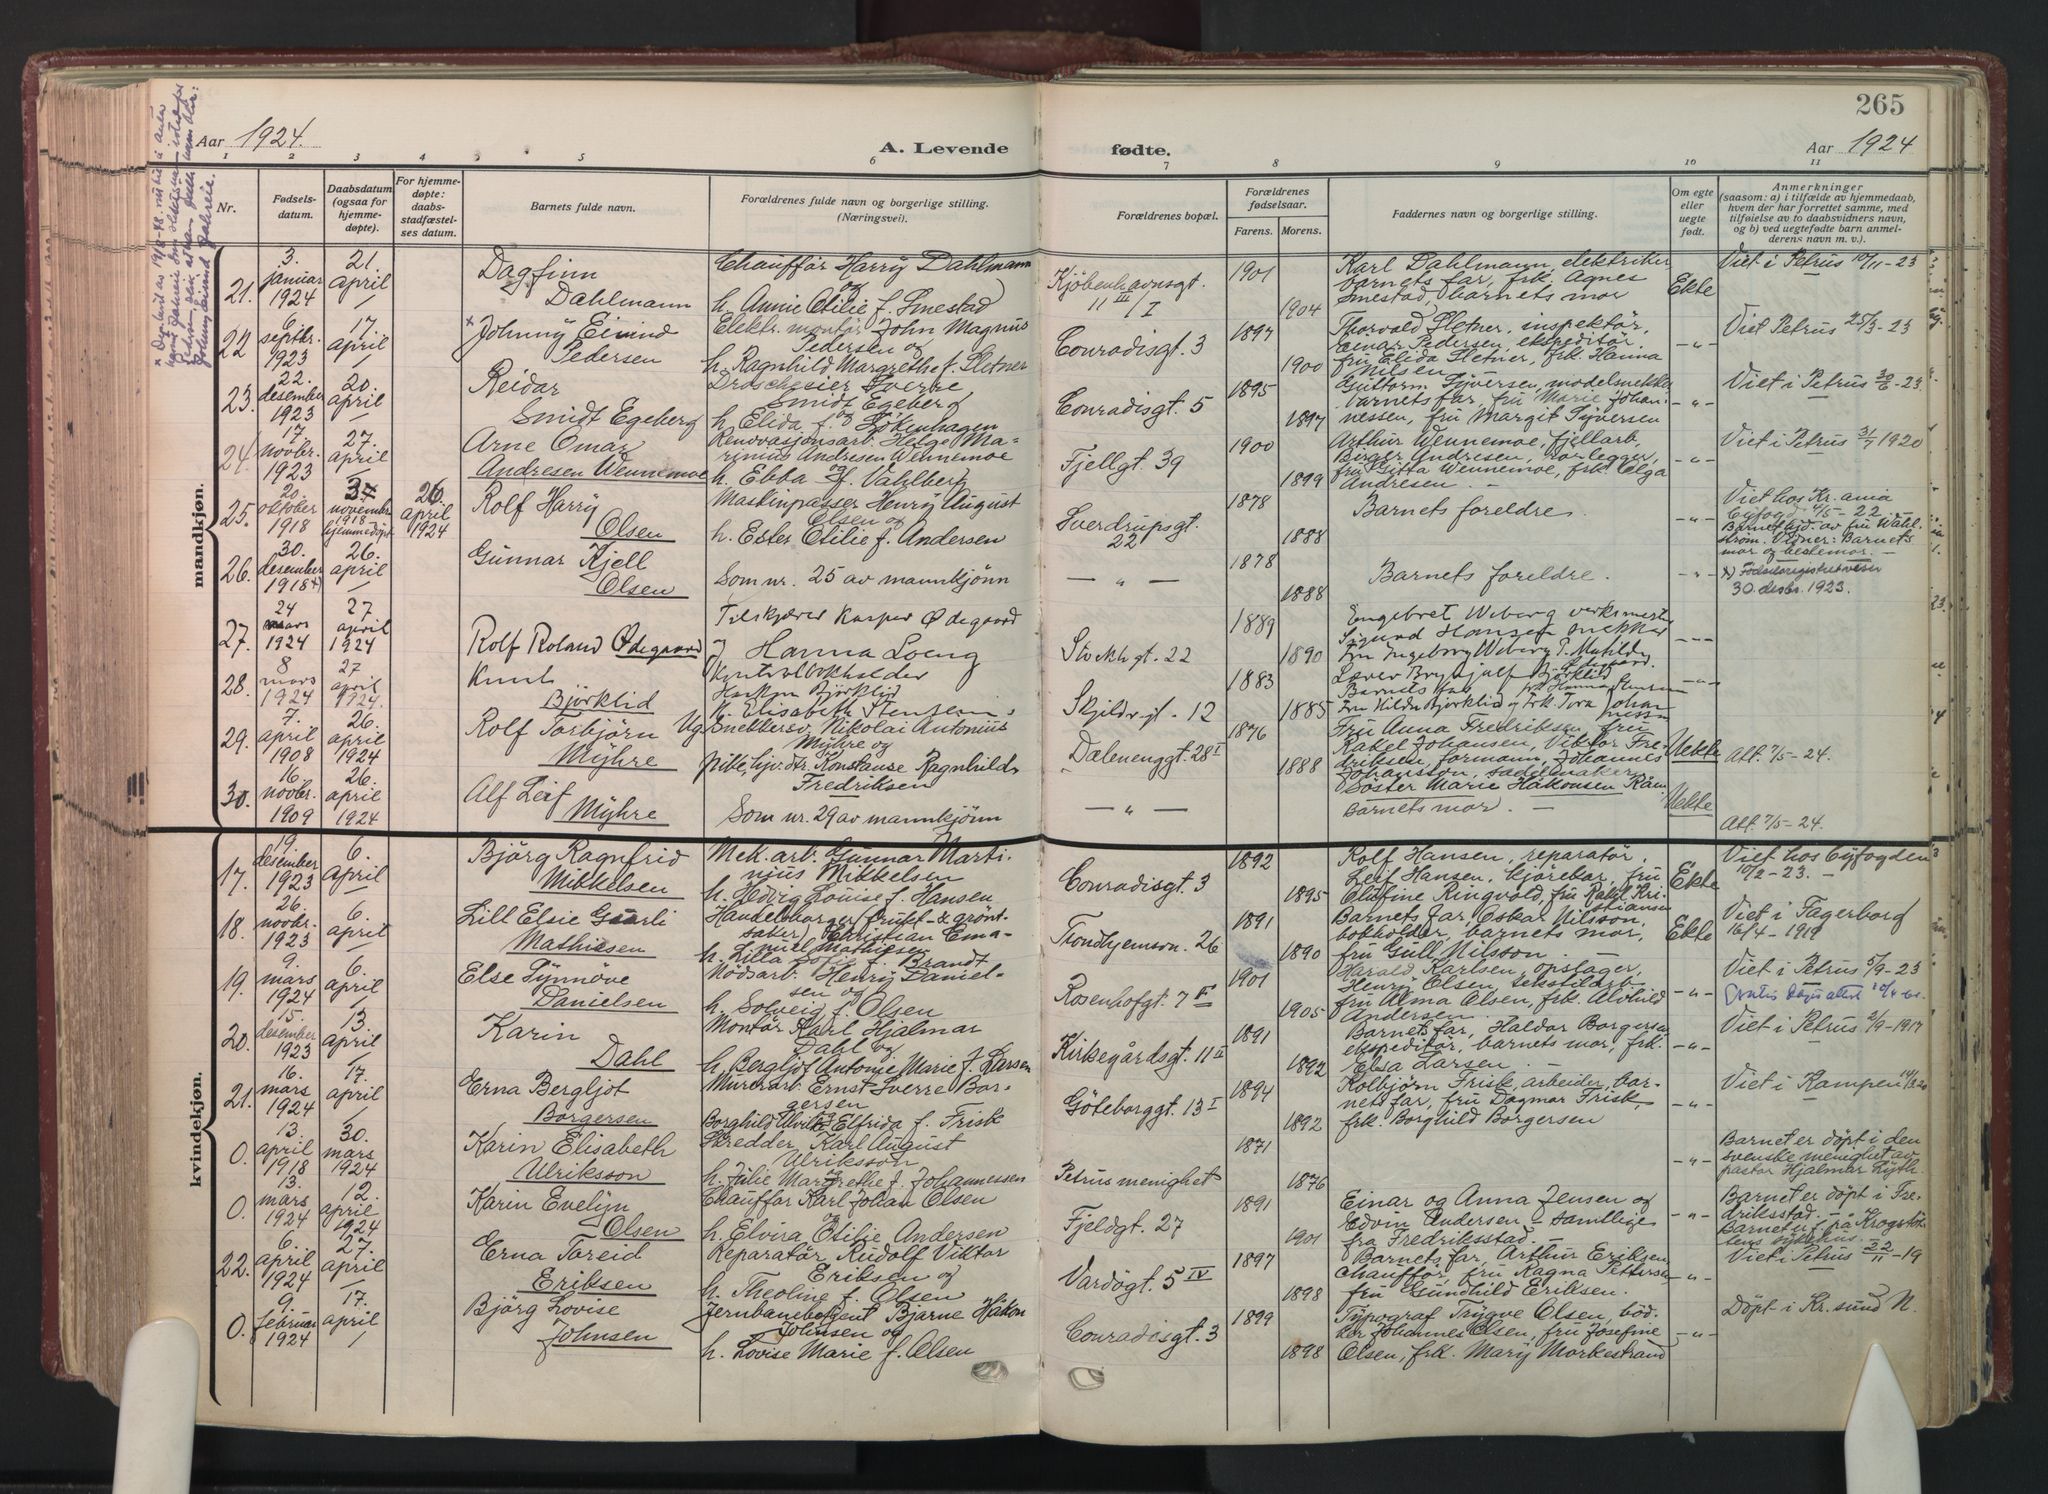 265
Aar 1924.
A. Levende
fødte.
Aar 1924
1 2 3 4 5 6 7 8 9 10 11
Nr.
Fødsels-
datum.
Daabsdatum
(ogsaa for
hjemme-
døpte).
For hjemme-
døpte:
daabs-
stadfæstel-
ses datum.
Barnets fulde navn.
Forældrenes fulde navn og borgerlige stilling.
(Næringsvei).
Forældrenes bopæl.
Forældrenes
fødselsaar.
Farens. Morens.
Faddernes navn og borgerlige stilling.
Om egte
eller
uegte
født.
Anmerkninger
(saasom: a) i tilfælde av hjemmedaab,
hvem der har forrettet samme, med
tilføielse av to daabsvidners navn,
og b) ved uegtefødte barn anmel-
derens navn m. v.).
mandkjøn.
21. 3. januar 1924 21 april
Dagfinn
Dahlmann
Chauffør Harry Dahlmann
og
h. Annie Otilie f. Smestad
Kjøbenhavnsgt.
11 III / I
1901 1904
Karl Dahlmann, elektriker
barnets far, frk. Agnes
Smestad, barnets mor
Ekte
Viet i Petrus 10/11-23
22 6. septbr. 1923 17 april
x Johnny Eivind
Pedersen
Elektr. montör John Magnus
Pedersen og
h. Ragnhild Margrethe f. Sletner
Conradisgt. 3
1897 1900
Thorvald Sletner, inspektör,
Einar Pedersen, ekspeditör,
fru Elida Sletner, frk. Hanna
Nilsen
- " -
Viet Petrus 25/3-23
23. 22. desember 1923 20. april
Reidar
Smidt Egeberg
Droscheeier Sverre
Smidt Egeberg
og
h. Elida f. Lökenhagen
Conradisgt. 5
1895 1897
Guttorm Syversen, modelsnekker
barnets far, fru Marie Johan-
nessen, fru Margit Syversen
- " -
Viet i Petrus 30/6-23
24. 17 novbr. 1923 27. april
Arne Omar
Andresen Wennemoe
Renovasjonsarb. Helge Ma-
rinius Andresen Wennemoe
og
h. Ebba f. Vahlberg
Fjellgt. 39
1900 1899
Arthur Wennemoe, fjellarb,
Birger Andresen, rörlegger,
fru Gitta Wennemoe, frk. Olga
Andresen. -
- " -
Viet i Petrus 31/7 1920
25. 20. oktober 1918 november 1918 hjemmedöpt 26 april 1924
Rolf Harry
Olsen
Maskinpasser Henry August
Olsen og
h. Ester Otilie f. Andersen
Sverdrupsgt.
22
1878 1888
Barnets foreldre.
- " -
Viet hos Kr. ania
Byfogd 4/5-22
Barnet hjd. av fru Wahl-
ström. Vidner: Barnets
mor og bestemor. -
26. 30. desember 1918 x) 26. april
Gunnar Kjell
Olsen
Som nr. 25 av mannkjönn
— " —
1878 1888
Barnets foreldre.
- " -
x) Födselsregistret viser
30. desbr. 1923.
27. 24 mars 1924 27 april 1924
Rolf Roland Ødegaard
Tilskjærer Kasper Ødegaard
Hanna Loeng
Stockhgt. 22
1889 1890
Engebret Wiberg verksmester
Sigurd Hansen snekker
Fru Ingeborg Wiberg
- " -
28. 8 mars 1924 27 april 1924.
Knut
Björklid
Kontrolbokholder
Haakon Björklid
h. Elisabeth Stensen
Skjildsgt. 12
1883 1885
Barnets far
Fru Hilda Bjørklid og Frk. Tora Johan
nessen
- " -
29. 7. april 1908 26. april 1924
Rolf Torbjörn
Myhre
Ug. Snekkersv. Nikolai Antonius
Myhre og
Pike, hjv. str. Konstanse Ragnhild
Fredriksen
Dælenenggt. 28 I
1876 1888
Fru Anna Fredriksen, fru
Rakel Johansen, Viktor Fre-
driksen, formann, Johannes
Johansson, sadelmaker
Uekte
Att. 7/5-24.
30. 16. novbr. 1909 26. april 1924
Alf Leif
Myhre
Som nr. 29 av mannkjönn
— " —
Söster Marie Håkonsen
Barnets mor. -
Uekte
Att. 7/5-24.
kvindekjøn.
17. 19. desember 1923 6. april
Björg Ragnfrid
Mikkelsen
Mek. arb. Gunnar Marti-
njus Mikkelsen
h. Hedvig Louise f. Hansen
Conradisgt. 3
1892 1895
Rolf Hansen, reparatör,
Leif Hansen, kjörebar, fru
Olufine Ringvold, fru Rakel Kri-
stiansen
Ekte
Viet hos Byfogden
10/2-23. -
18. 26. novbr. 1923 6. april
Lill Elsie
Mathiesen
Handelsborger (frukt- & grönt-
saker) Christian Ema-
nuel Mathiesen
h. Lilla Sofie f. Brandt
Trondhjemsvn. 26
1891 1890
Barnets far, Oskar Nilsson,
bokholder, barnets mor,
fru Gull Nilsson. -
Ekte
Viet i Fagerborg
16/4-1919
19. 9. mars 1924 6. april
Else Synnöve
Danielsen
Nödsarb. Henry Daniel-
sen og
h. Solveig f. Olsen
Rosenhofgt. 7 II
1901 1905
Harald Karlsen, opslager,
Henry Olsen,
fru Alma Olsen, frk. Alvhild
Andersen.
- " -
Viet i Petrus 5/9-23
20. 15. desember 1923 13 april
Karin
Dahl
Montör Karl Hjalmar
Dahl og
h. Bergljot Antonie Marie f. Larsen
Kirkegårdsgt. 11 II
1891 1892
Barnets far, Haldor Borgersen
ekspeditör, barnets mor, frk.
Elsa Larsen. -
- " -
Viet i Petrus 2/9-1917
21. 16. mars 1924 17. april
Erna Bergljot
Borgersen
Murerarb. Ernst Sverre Bor-
gersen
Borghild Ulrikke Elfrida f. Frisk
Göteborggt. 13 I
1894 1892
Kolbjörn Frisk, arbeider, bar-
nets far, fru Dagmar Frisk,
frk. Borghild Borgersen
- " -
Viet i Kampen
0. 13 april 1918 30. mars 1924
Karin Elisabeth
Ulriksson
Skredder, Karl August
Ulriksson
og
h. Julie Margrethe f. Johannessen
Petrus menighet
1871 1876
- " -
Barnet er döpt i den
svenske menighet av
pastor Hjalmar
0. 13. mars 1924 12. april 1924
Karin Evelyn
Olsen
Chauffør Karl Johan Olsen
og
h. Elvira Otilie Andersen
Fjeldgt. 27
1891 1901
Einar og Anna Jensen og
Edvin Andersen - samtlige
fra Fredriksstad. -
- " -
Barnet er döpt i Fre-
driksstad. -
Barnet er f. på Krogstöt-
tens sykehus.
22. 6. april 1924 27. april
Erna Toreid
Eriksen
Reparatør, Rudolf Viktor
Eriksen og
h. Theoline f. Olsen
Vardögt. 5 IV
1897 1898
Barnets far, Arthur Eriksen
Chauffør, fru Ragna Pettersen
fru Gundhild Eriksen.
- " -
Viet i Petrus 22/11-19
0. 9 februar 1924 17. april
Björg Lovise
Johnsen
Jernbanebetjent Bjarne Håkon
Johnsen og
h. Lovise Marie f. Olsen
Conradisgt. 3
1899 1898
Typograf Trygve Olsen, böd-
ker Johannes Olsen, fru Josefine
Olsen, frk. Mary Mörkestrand
- " -
Döpt i Kr. sund N.